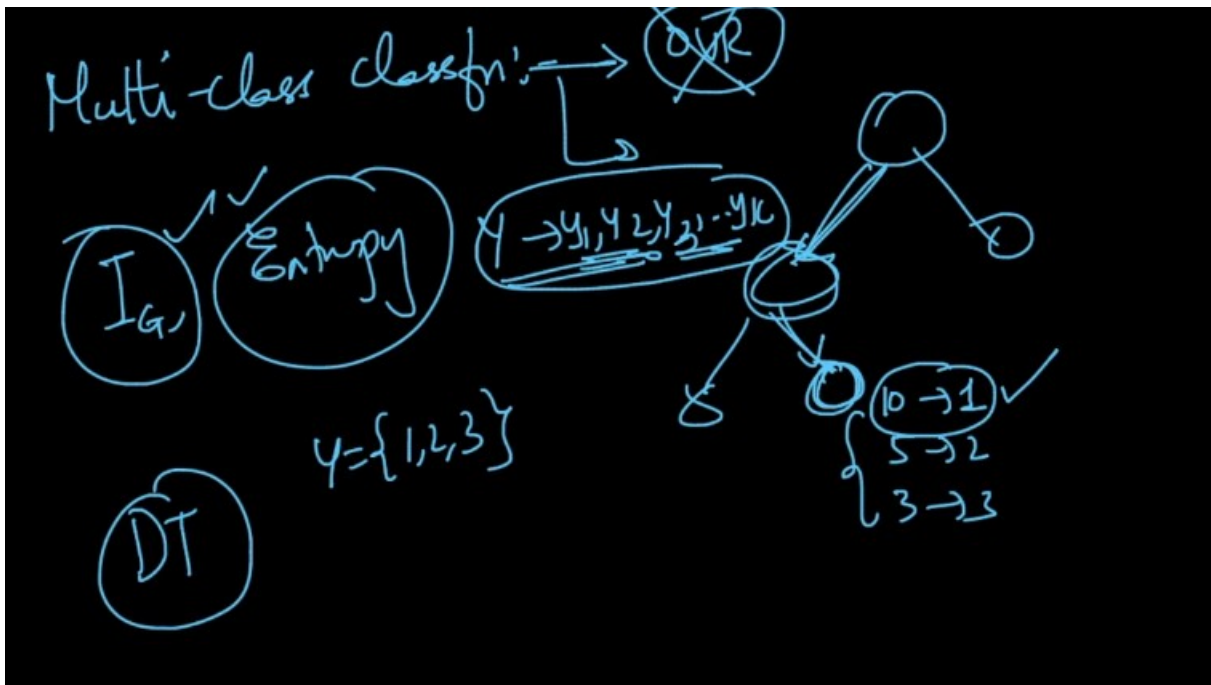 Multi-class classfn:- → OVR
IG, Entropy
Y → y1, y2, y3, ... yk
10 → 1
5 → 2
3 → 3
Y={1,2,3}
DT